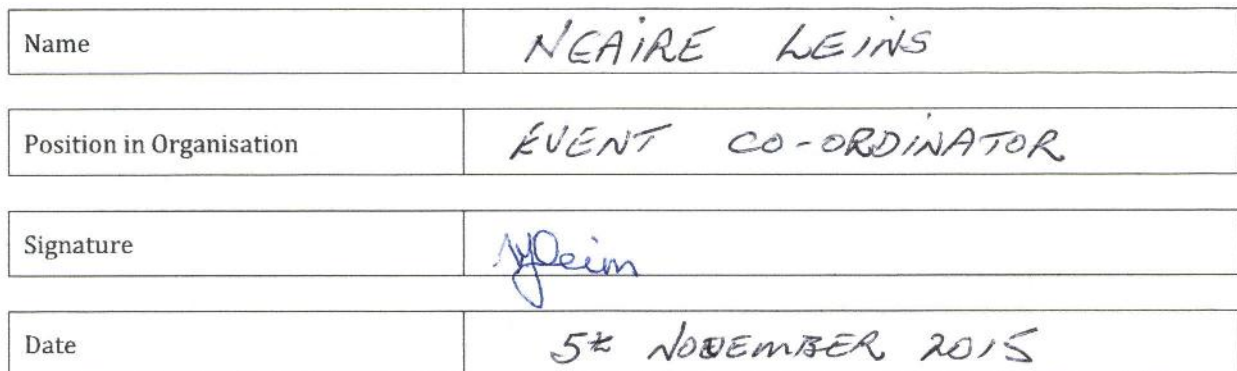 Name NEAIRE LEINS
Position in Organisation EVENT CO-ORDINATOR
Signature
Date 5th NOVEMBER 2015